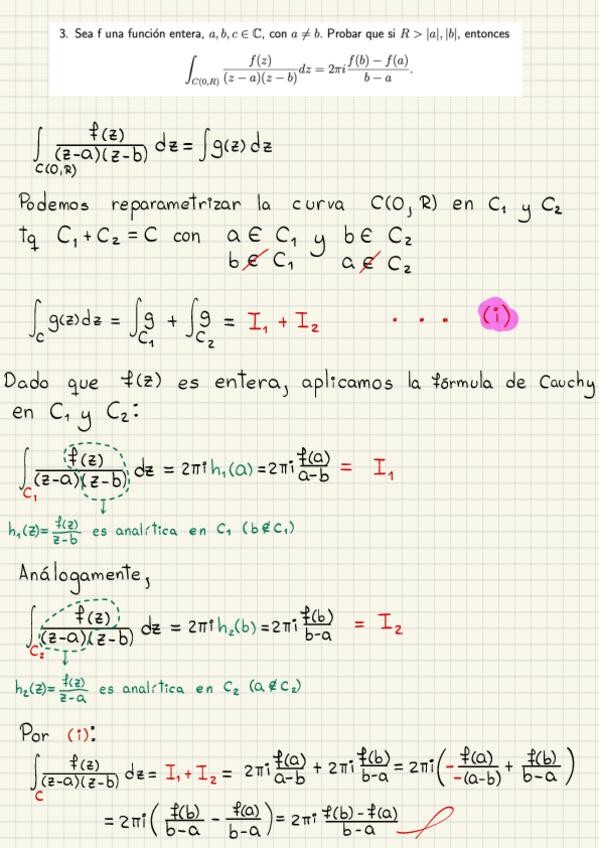 3. Sea f una función entera, a, b, c ∈ ℂ, con a ≠ b. Probar que si R > |a|, |b|, entonces
∫_{C(0,R)} f(z)/((z − a)(z − b)) dz = 2πi (f(b) − f(a))/(b − a).
∫_{C(0,R)} f(z)/((z-a)(z-b)) dz = ∫g(z) dz
Podemos reparametrizar la curva C(0,R) en C₁ y C₂
tq C₁ + C₂ = C con a ∈ C₁ y b ∈ C₂
b ∉ C₁ a ∉ C₂
∫_C g(z)dz = ∫_{C₁} g + ∫_{C₂} g = I₁ + I₂ . . . (i)
Dado que f(z) es entera, aplicamos la fórmula de Cauchy
en C₁ y C₂:
∫_{C₁} f(z)/((z-a)(z-b)) dz = 2πi h₁(a) = 2πi f(a)/(a-b) = I₁
h₁(z) = f(z)/(z-b) es analítica en C₁ (b∉C₁)
Análogamente,
∫_{C₂} f(z)/((z-a)(z-b)) dz = 2πi h₂(b) = 2πi f(b)/(b-a) = I₂
h₂(z) = f(z)/(z-a) es analítica en C₂ (a∉C₂)
Por (i):
∫_C f(z)/((z-a)(z-b)) dz = I₁ + I₂ = 2πi f(a)/(a-b) + 2πi f(b)/(b-a) = 2πi(-f(a)/-(a-b) + f(b)/(b-a))
= 2πi(f(b)/(b-a) - f(a)/(b-a)) = 2πi (f(b)-f(a))/(b-a)